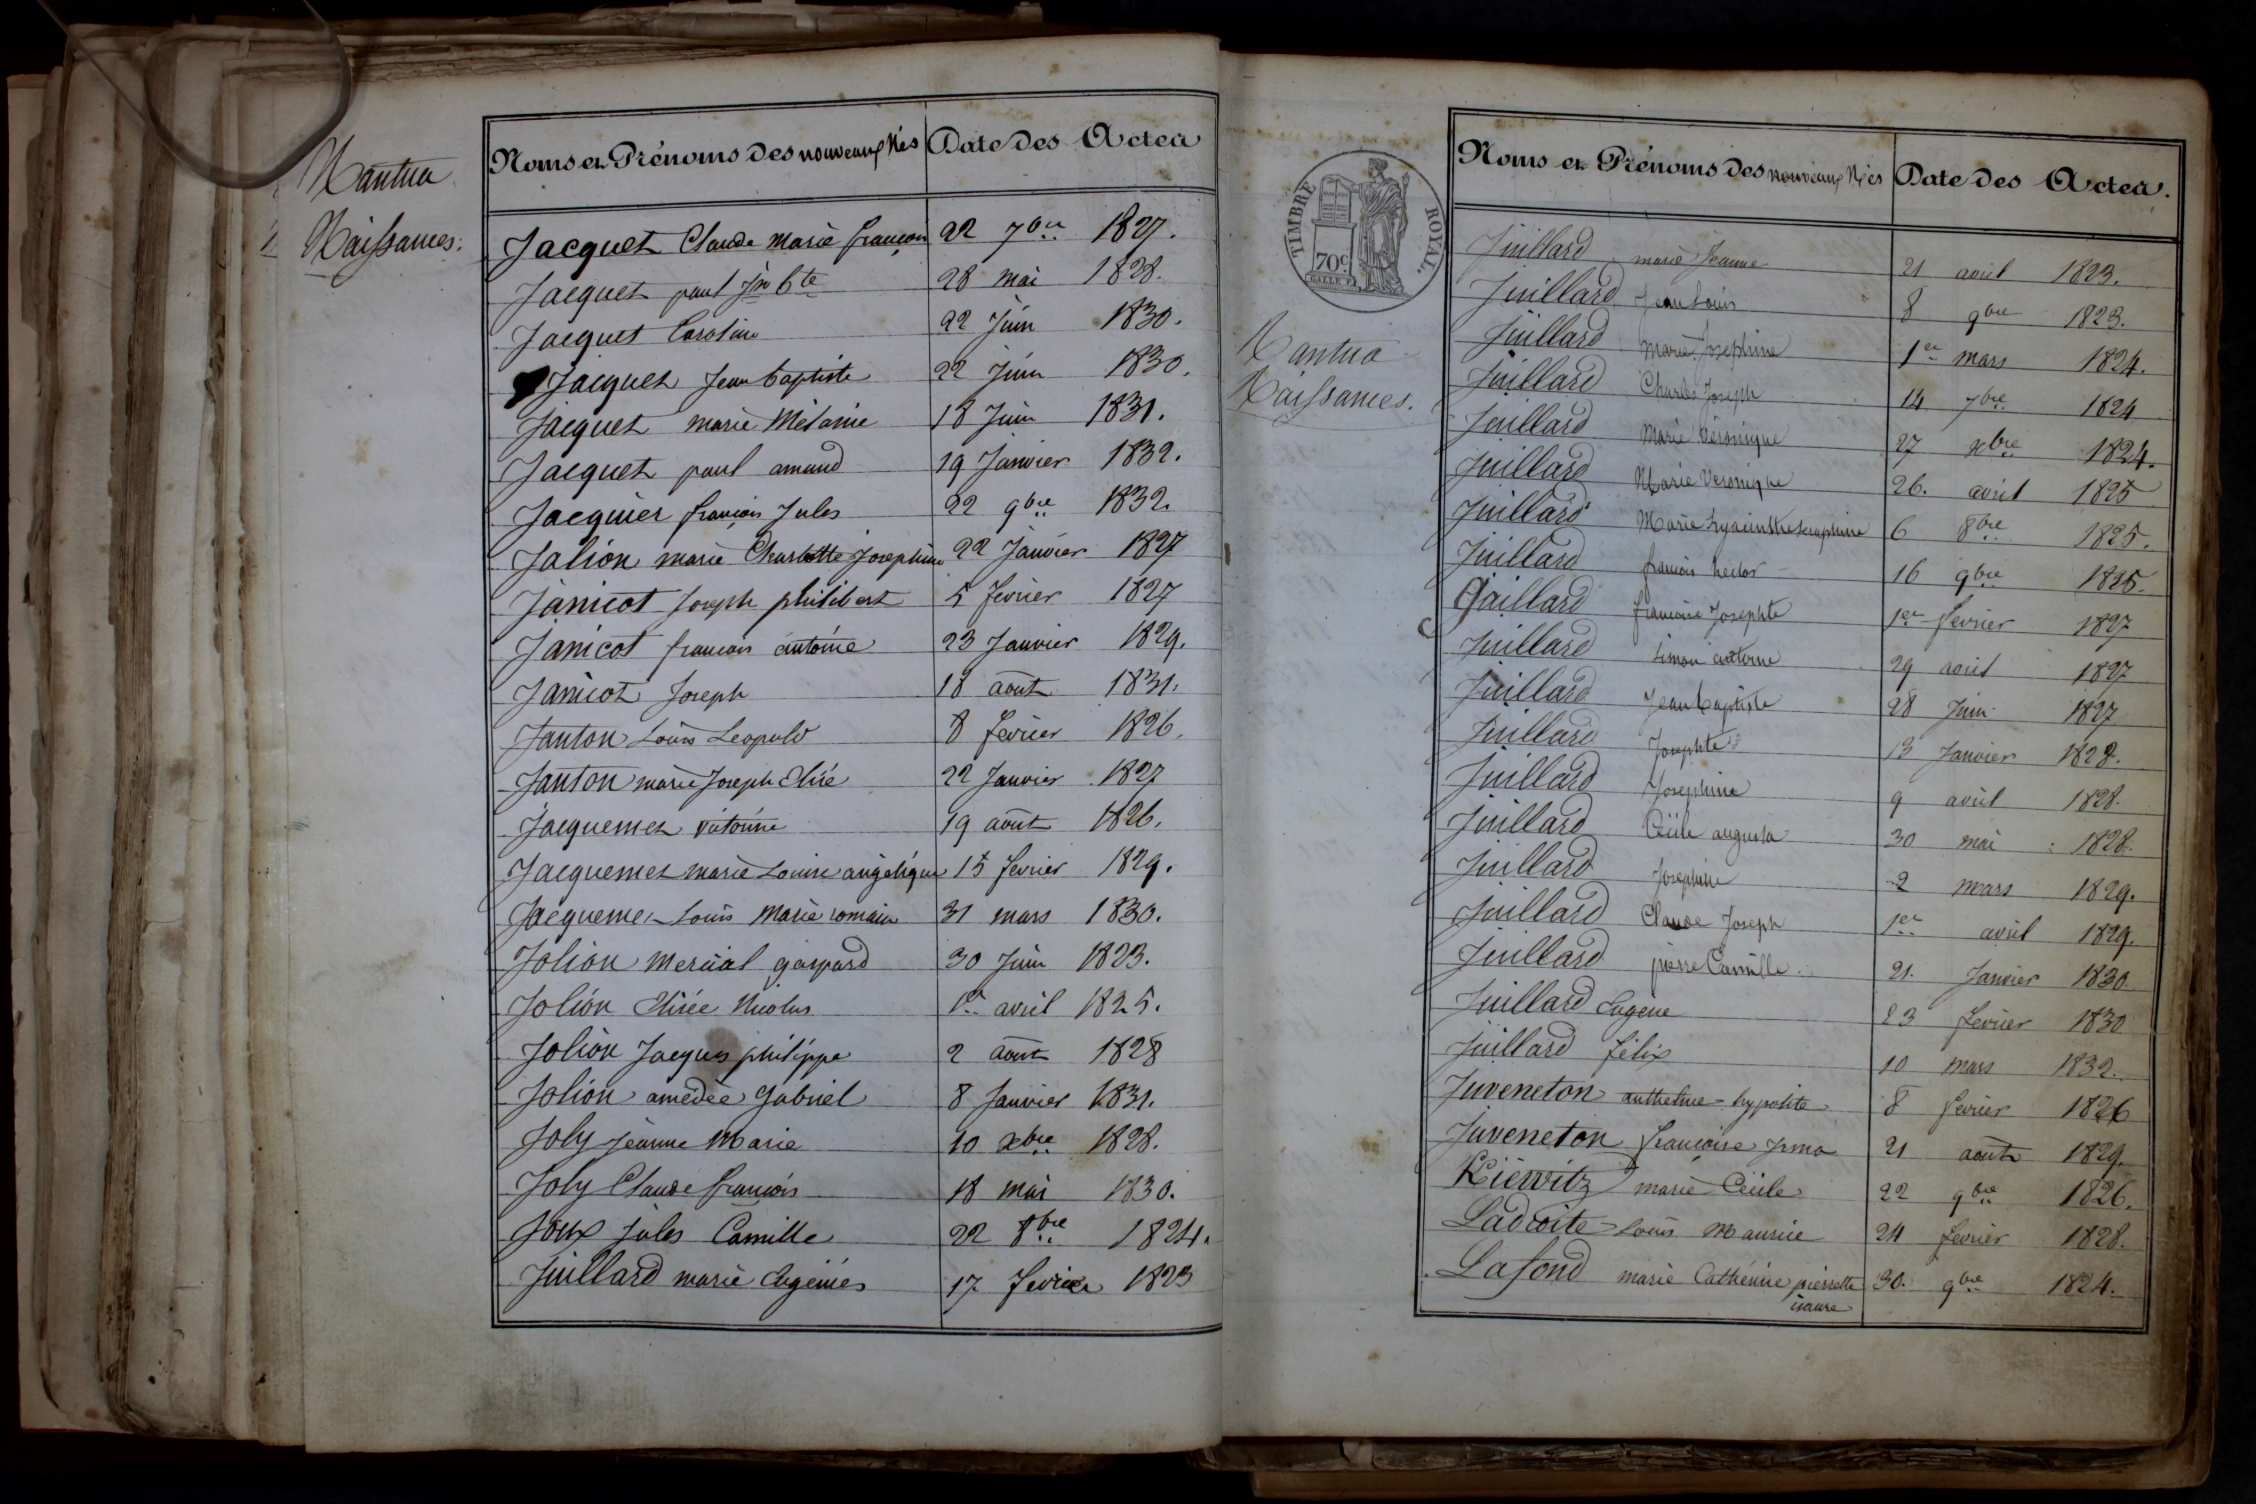 Nantua
Naissances.
Noms et Prénoms des nouveaux Nés Date des Actes
Jacquet Claude marie françois 22 7bre 1827.
Jacquet paul Jn bte 28 mai 1828.
Jacquet Caroline 22 Juin 1830.
Jacquet Jean baptiste 22 Juin 1830.
Jacquet marie Mélanie 18 Juin 1831.
Jacquet paul amand 19 Janvier 1832.
Jacquier françois Jules 22 9bre 1832.
Jalion marie Charlotte Josephine 22 Janvier 1827
Janicot Joseph philibert 5 fevrier 1827
Janicot francois antoine 23 Janvier 1829.
Janicot Joseph 18 août 1831.
Janton Louis Leopold 8 fevrier 1826.
Janton marie Joseph Elisé 22 Janvier 1827
Jacquemet 19 août 1826.
Jacquemet marie Louise angélique 15 fevrier 1829.
Jacquemet Louis Marie romain 31 mars 1830.
Jolion Mercial gaspard 30 Juin 1823.
Jolion Elisée Nicolas 1er avril 1825.
Jolion Jacques philippe 2 août 1828
Jolion amédée gabriel 8 Janvier 1831.
Joly Jeanne Marie 10 xbre 1828.
Joly Claude françois 18 mai 1830.
Joux Jules Camille 22 8bre 1824.
Juillard marie Eugénie 17 fevrier 1823
TIMBRE ROYAL.
70c
Nantua
Naissances.
Noms et Prénoms des nouveaux Nés Date des Actes.
Juillard marie Jeanne 21 avril 1823.
Juillard Jean Louis 8 9bre 1823.
Juillard Marie Josephine 1er mars 1824.
Juillard Charles Joseph 14 7bre 1824
Juillard Marie Véronique 27 xbre 1824.
Juillard Marie Veronique 26. avril 1825
Juillard Marie hyacinthe seraphine 6 8bre 1825.
Juillard francois hector 16 9bre 1825.
Gaillard francoise Josephte 1er fevrier 1827
Juillard Simon antoine 29 avril 1827
Juillard Jean baptiste 28 Juin 1827
Juillard Josephte 13 Janvier 1828.
Juillard Josephine 9 avril 1828.
Juillard Cécile augusta 30 mai 1828.
Juillard Josephine 2 mars 1829.
Juillard Claude Joseph 1er avril 1829.
Juillard pierre Camille 21. Janvier 1830
Juillard Eugène 23 fevrier 1830
Juillard félix 10 mars 1832.
Juveneton anthelme hypolite 8 fevrier 1826
Juveneton francoise Irma 21 août 1829.
Kiewitz marie Cécile 22 9bre 1826.
Ladroite Louis Maurice 24 fevrier 1828.
Lafond marie Cathérine pierrette 30. 9bre 1824.